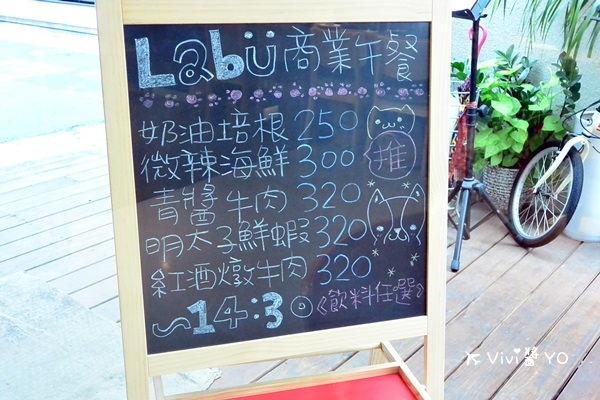 Labü 商業午餐
奶油培根 250
微辣海鮮 300 推
青醬牛肉 320
明太子鮮蝦 320
紅酒燉牛肉 320
~14:30 《飲料任選》
Vivi醬YO